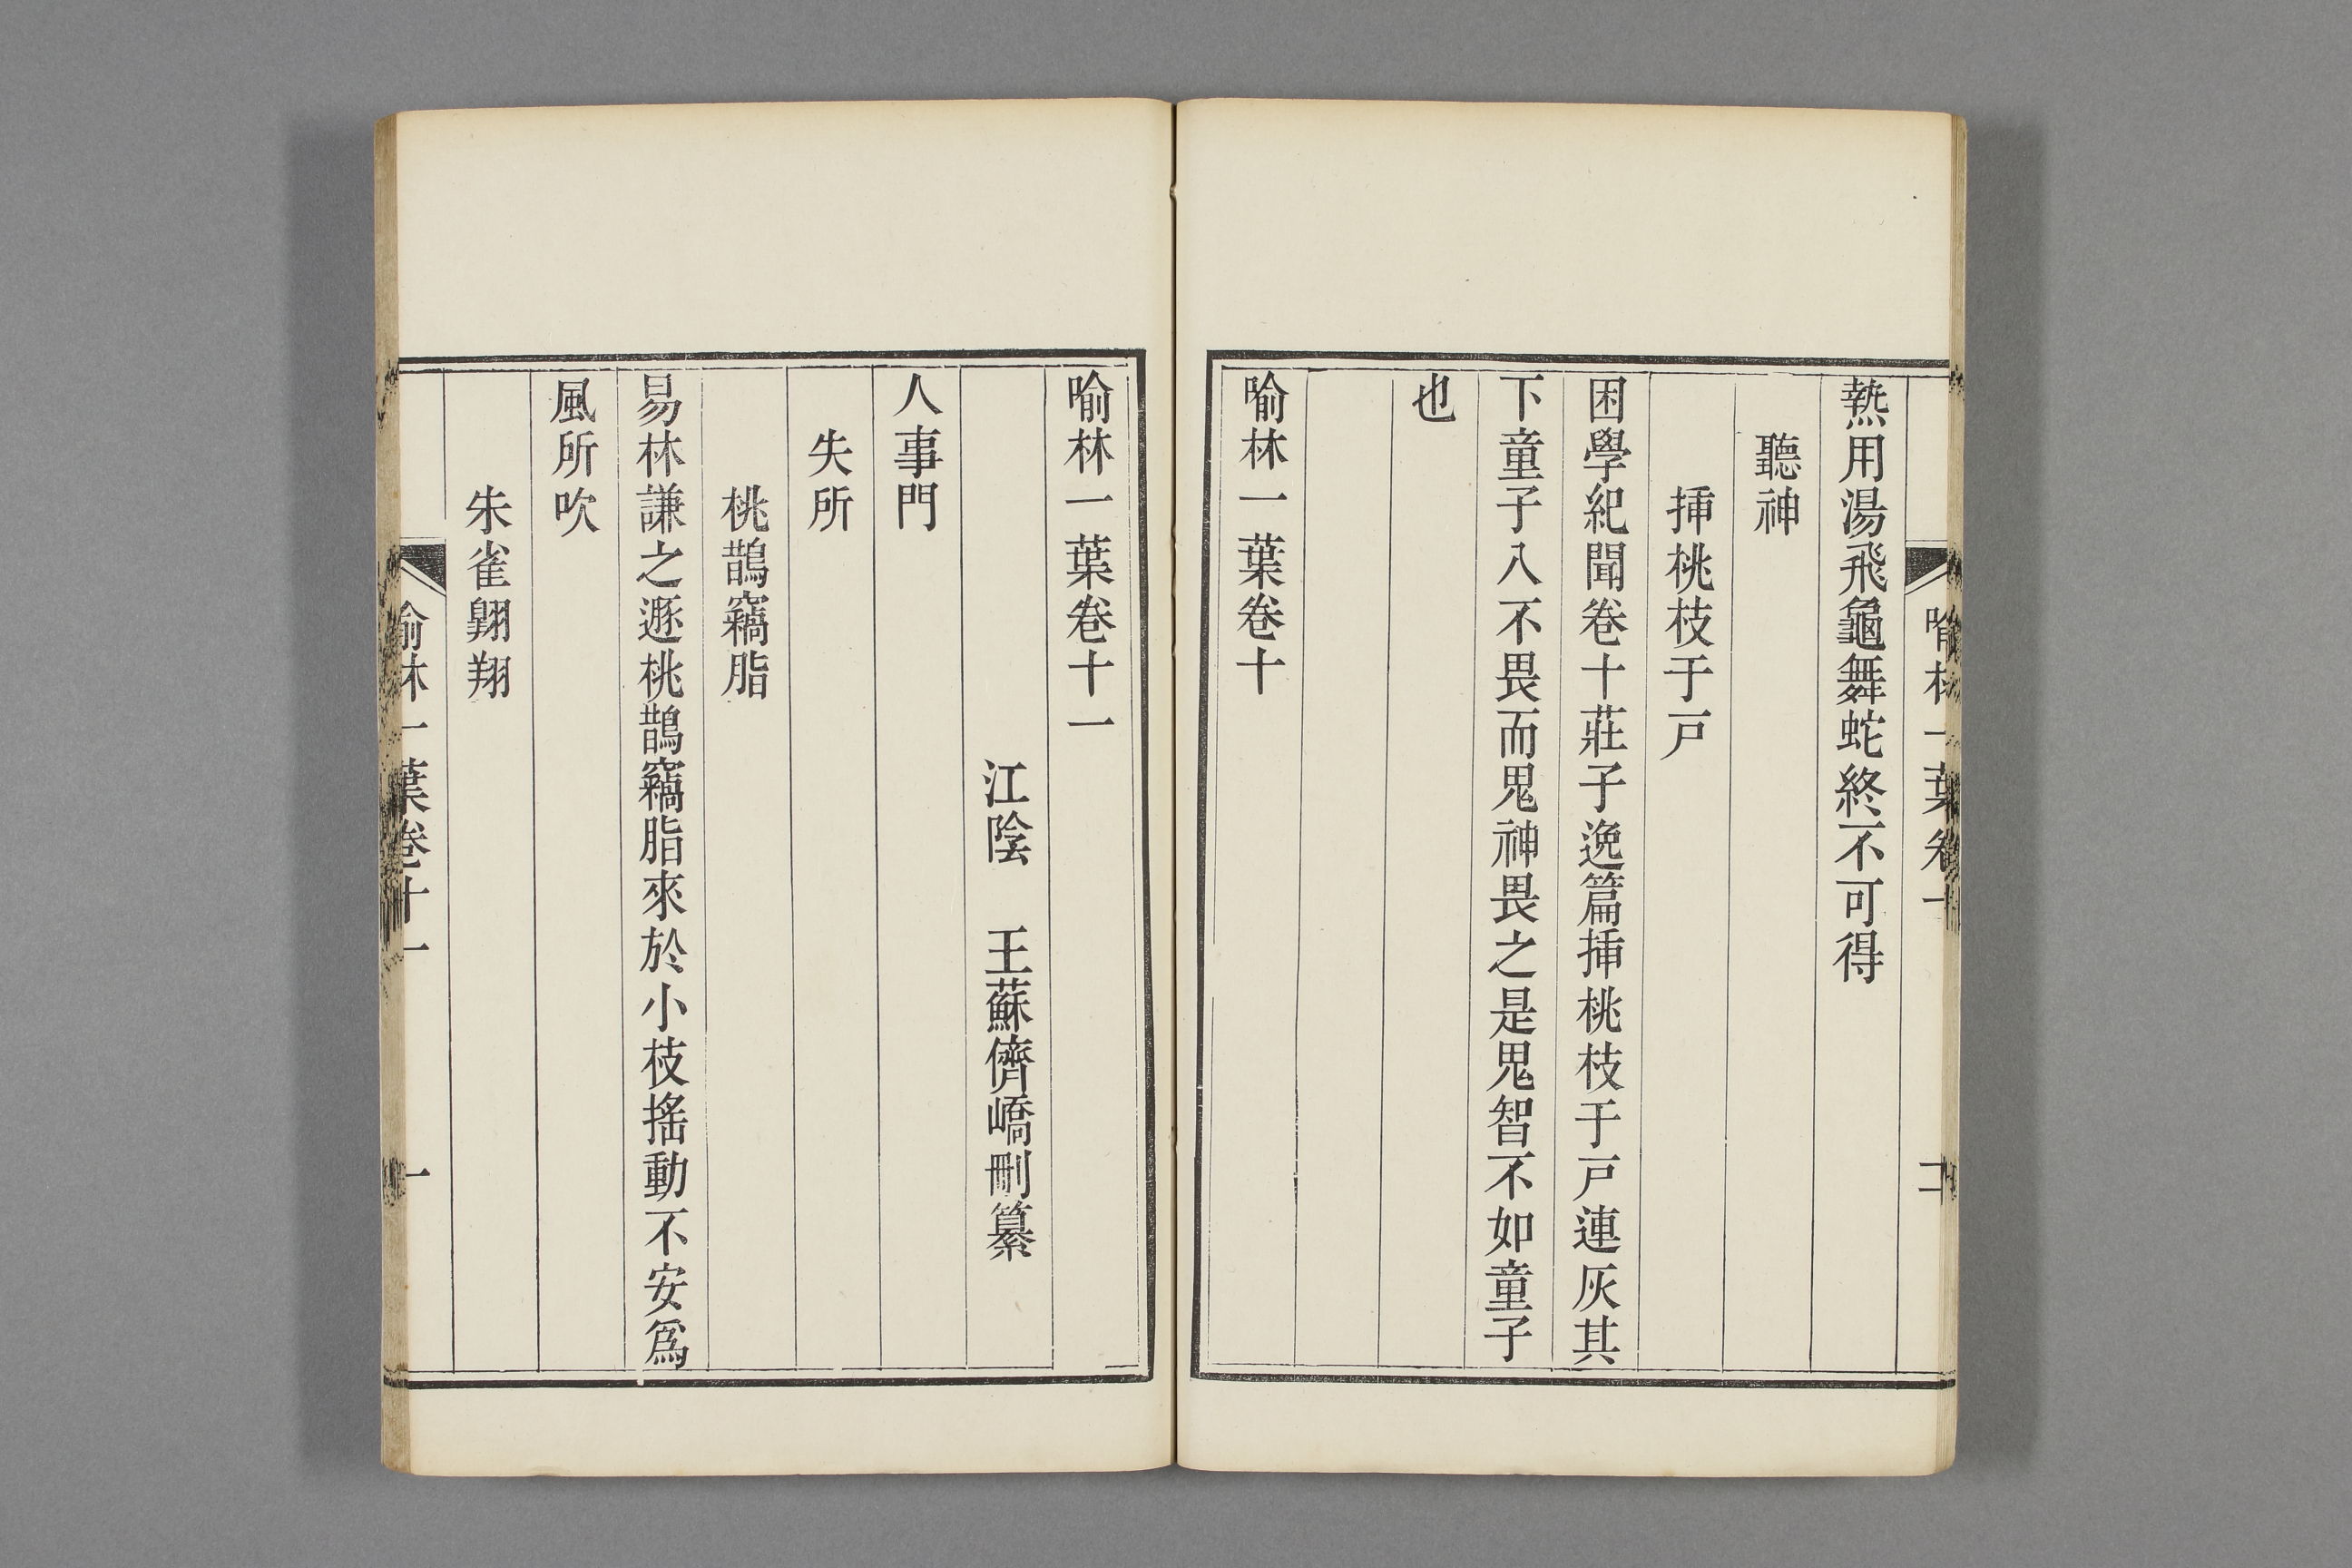 熱用湯飛龜舞蛇終不可得
聽神
揷桃枝于戸
困學紀聞卷十莊子逸篇揷桃枝于戸連灰其
下童子入不畏而鬼神畏之是鬼智不如童子
也
喻林一葉卷十
喻林一葉卷十一
江陰　王蘇儕嶠刪纂
人事門
失所
桃鵲竊脂
易林謙之遯桃鵲竊脂來於小枝搖動不安爲
風所吹
朱雀翺翔
喻林一葉卷十一
一